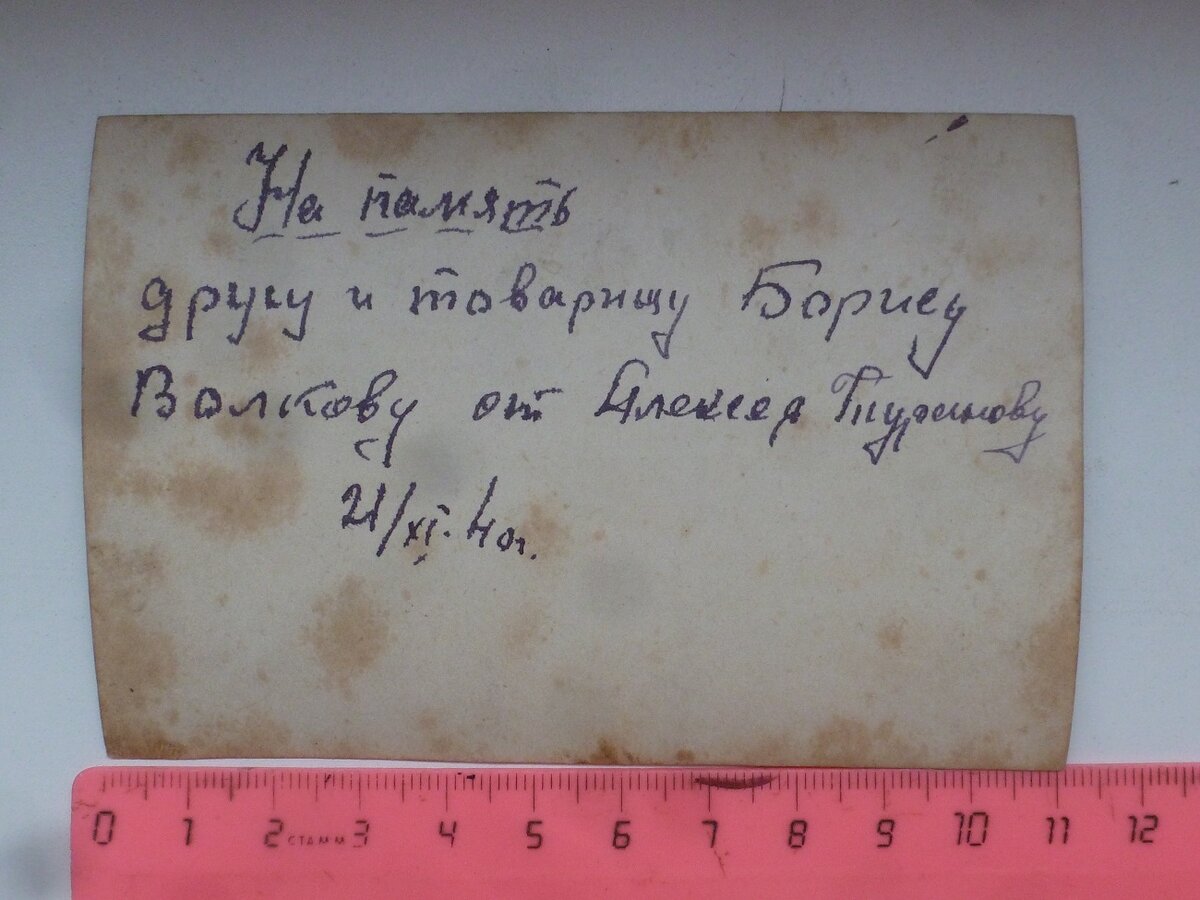 На память
другу и товарищу Борису
Волкову от Алексея
21/XI. 40г.
0 1 2 СТАММ 3 4 5 6 7 8 9 10 11 12